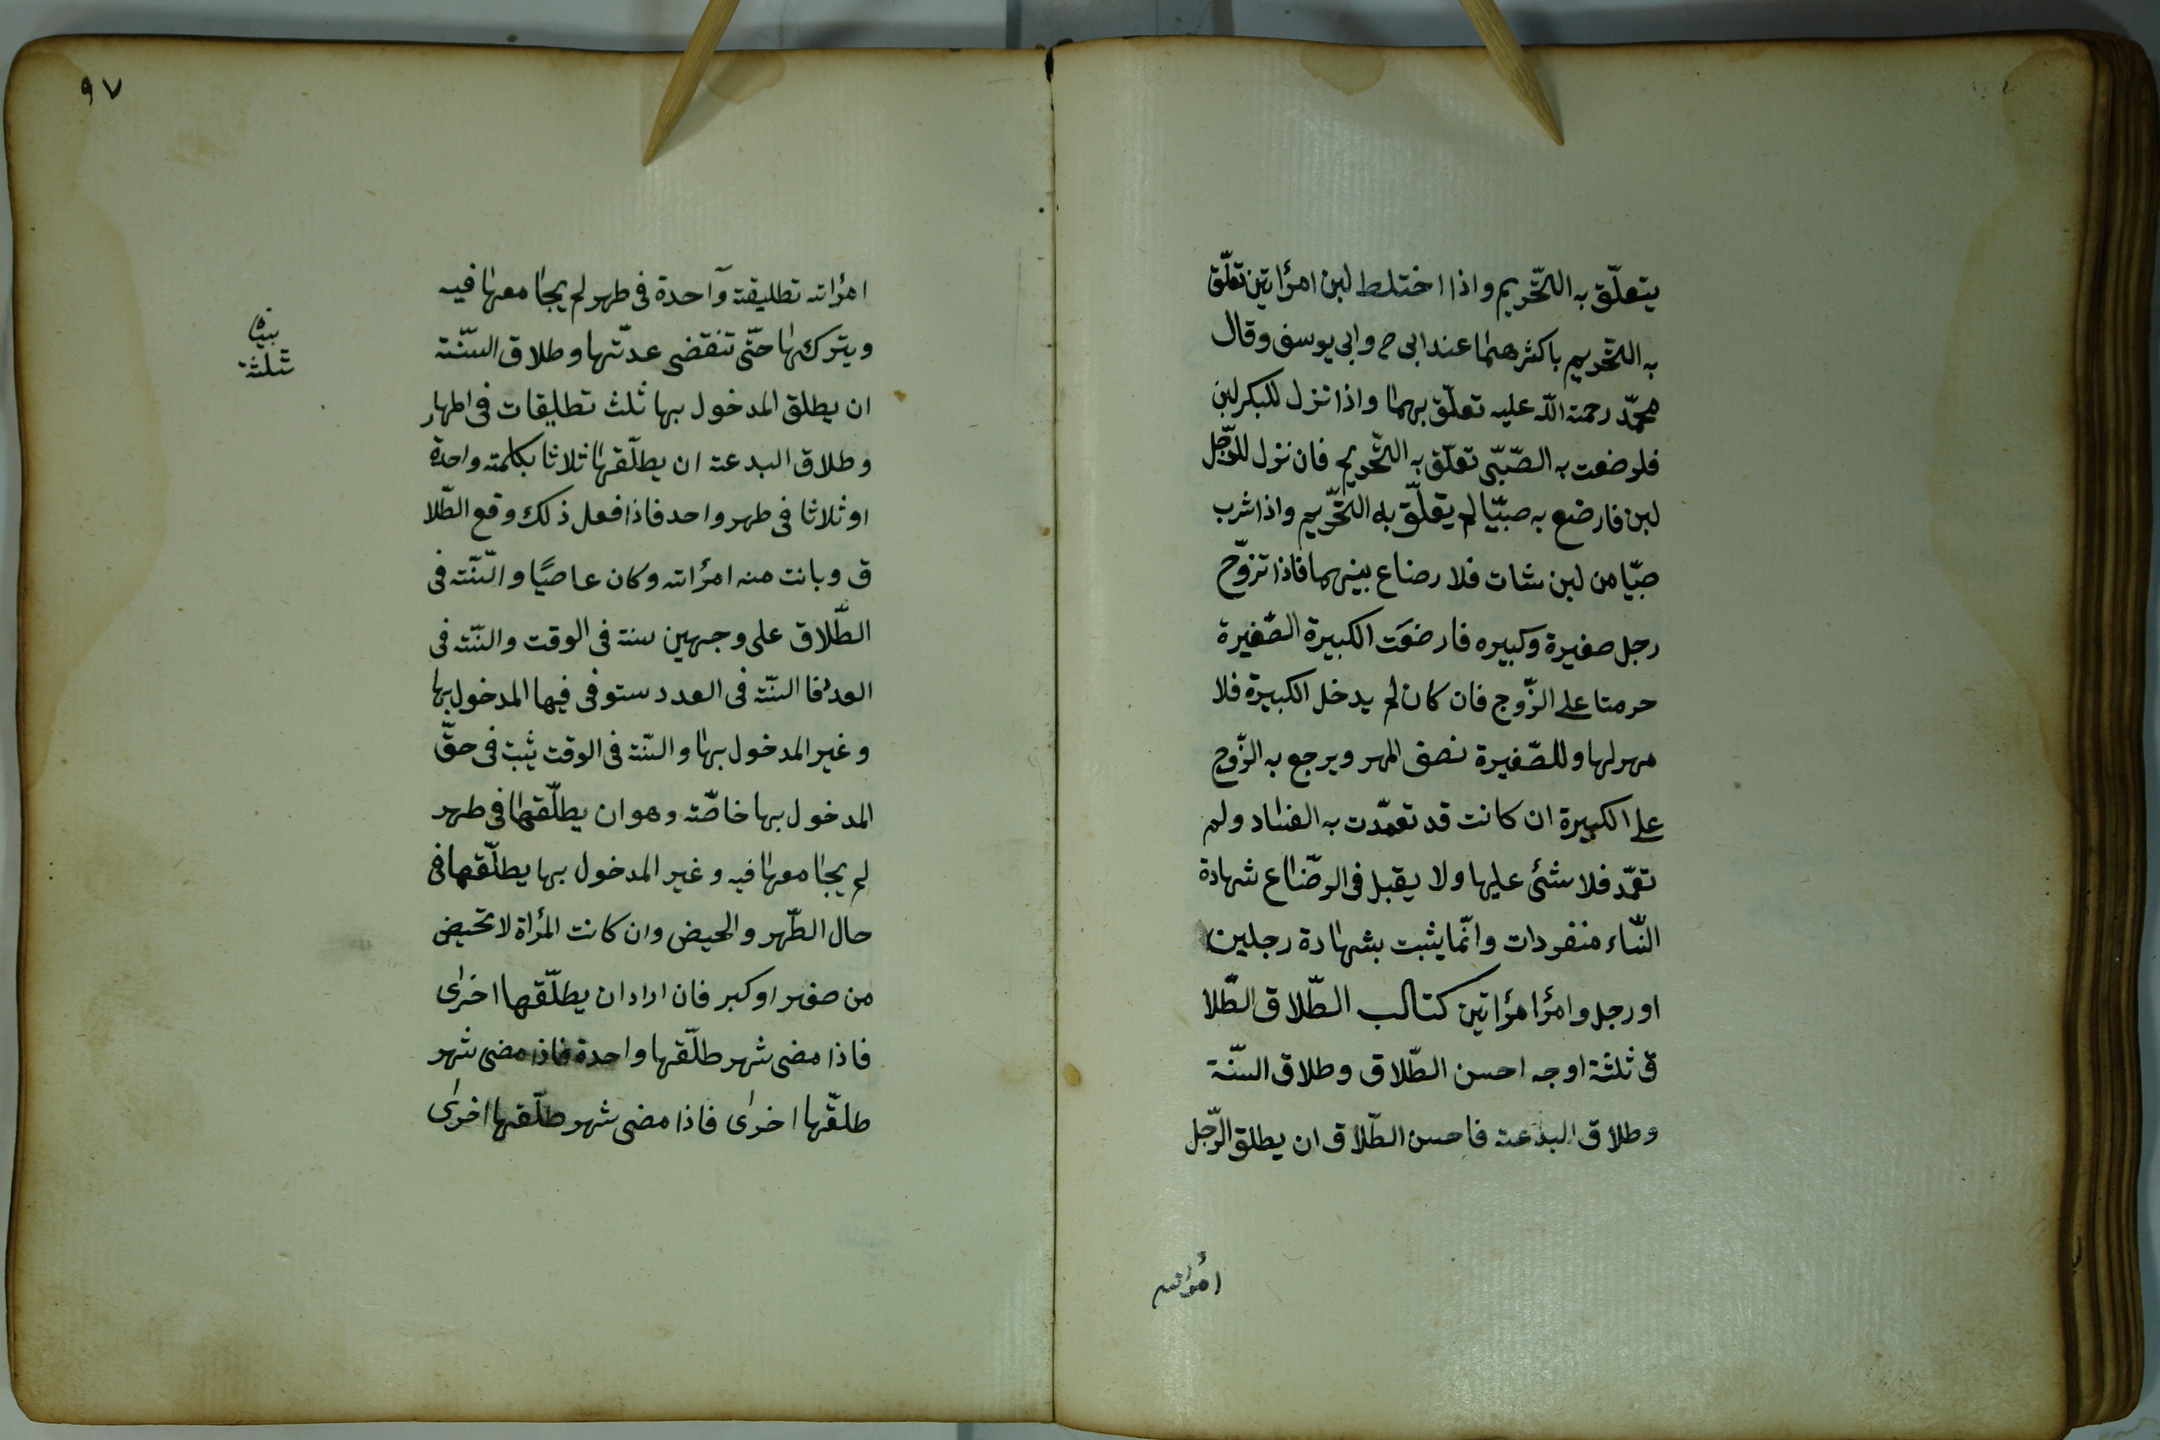 يتعلّق به التّحريم واذا اختلط لبن امرٔاتين تعلّق
به التّحريم باكثرهما عند ابى ح وابى يوسف وقال
محمّد رحمة اللّه عليه تعلّق بهما واذا نزل للبكر لبن
فلوضعت به الصّبّى تعلّق به التّحريم فان نزل للرّجل
لبن فارضع به صبيّا لم يتعلّق به التّحريم واذا شرب
صبّيا من لبن شات فلا رضاع بينهما فاذا تزوّج
رجل صغيرة وكبيره فارضعَت الكبيرة الصّغيرة
حرمتا على الزّوج فان كان لم يدخل الكبيرة فلا
مهر لها وللصّغيرة نصف المهر ويرجع به الزّوج
على الكبيرة ان كانت قد تعمّدت به الفساد ولم
تعمّد فلا شئ عليها ولا يقبل فى الرضّاع شهادة
النّساء منفردات وانّما يثبت بشهادة رجلين
او رجل وامرٔا امرٔاتين كتاب الطّلاق الطّلا
ق ثلثة اوجه احسن الطّلاق وطلاق السّنّة
وطلاق البدعة فاحسن الطّلاق ان يطلق الرّجل
امرٔاته
٩٧
امرٔاته تطليقة وٓاحدة فى طهر لم يجامعها فيه
ويتركها حتّى تنقضى عدّتها وطلاق السّنّة
ان يطلق المدخول بها ثلث تطليقات فى اطهار
وطلاق البدعة ان يطلّقها ثلاثا بكلمة واحدة
او ثلاثا فى طهر واحد فاذا فعل ذلك وقع الطّلا
ق وبانت منه امرٔاته وكان عاصيًا والسّنّة فى
الطّلاق على وجهين سنة فى الوقت والسّنّة فى
العدد فا السّنّة فى العدد ستوفى فيها المدخول بها
وغير المدخول بها والسّنّة فى الوقت يثبت فى حقّ
المدخول بها خاصّة وهو ان يطلّقها فى طهر
لم يجامعها فيه وغير المدخول بها يطلّقها فى
حال الطّهر والحيض وان كانت المرٔاة لا تحيض
من صغر او كبر فان اراد ان يطلّقها اخرى
فاذا مضى شهر طلّقها واحدة فاذا مضى شهر
طلقّها اخرى فاذا مضى شهر طلّقها اخرى
ثلثة